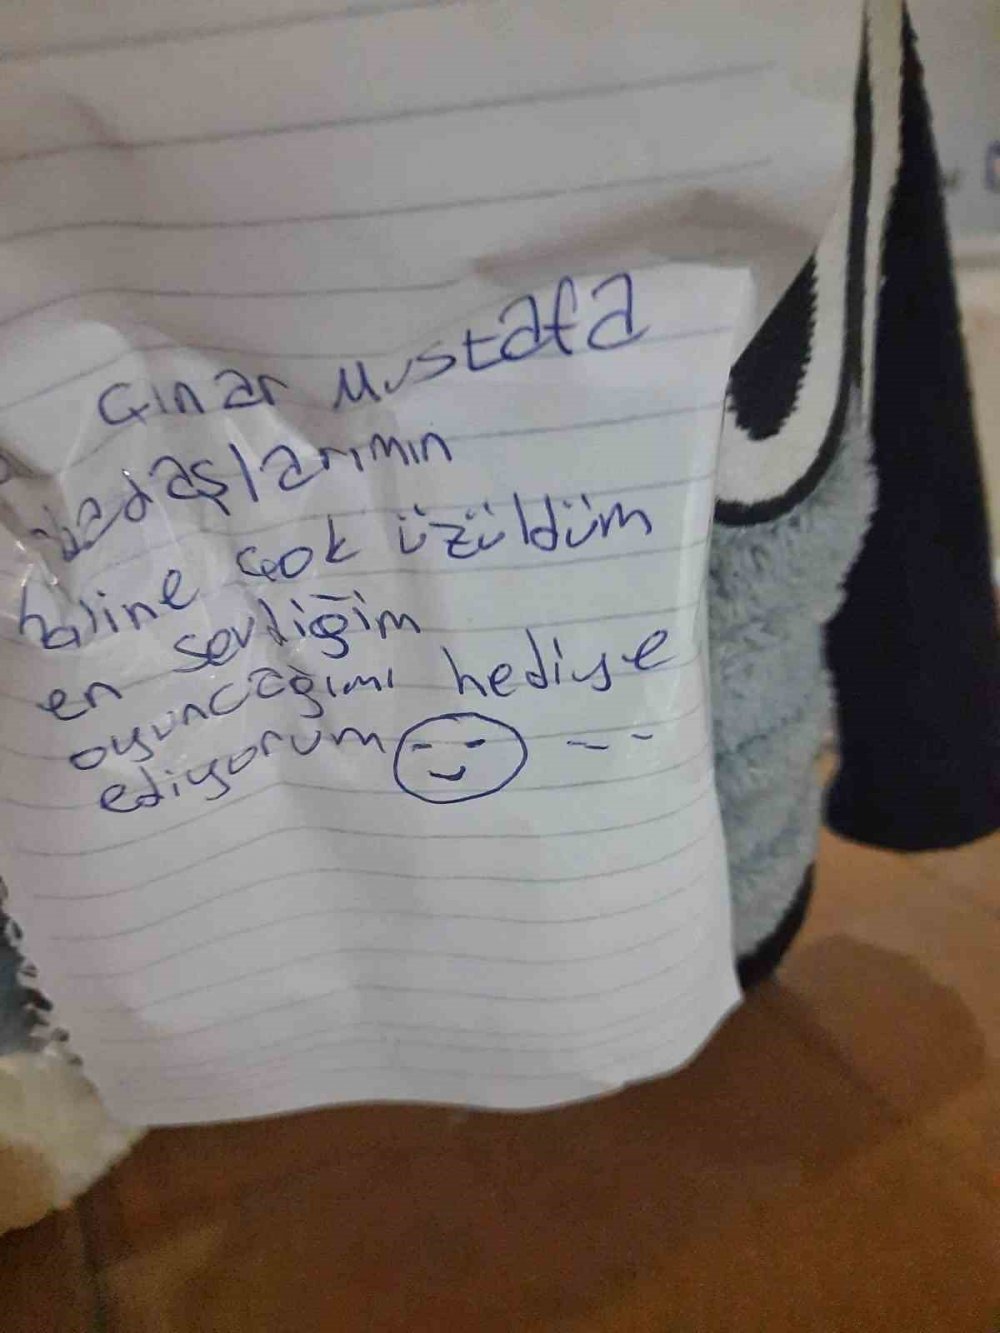 Çınar Mustafa
arkadaşlarımın
haline çok üzüldüm
en sevdiğim
oyuncağımı hediye
ediyorum